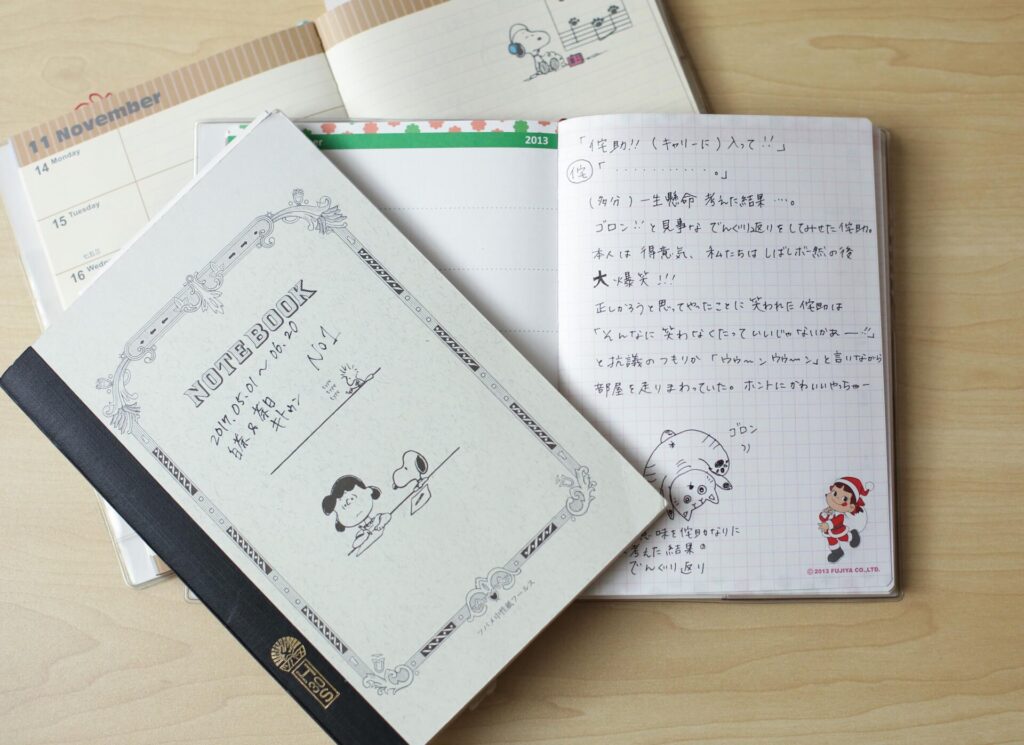 11 November
14 Monday
15 Tuesday
七五三
16 Wedne
2013
「侘助!! (キャリーに) 入って!!」
侘「・・・・・・・・・・・。」
(多分) 一生懸命 考えた結果 ….。
ゴロン!!と見事な でんぐり返りをしてみせた侘助。
本人は 得意気、私たちは しばしボー然の後
大 爆笑 !!!
正しかろうと思ってやったことに 笑われた侘助は
「そんなに 笑わなくたっていいじゃないかあー!!」
と抗議のつもりか 「ウゥ〜ンウゥ〜ン」と言いながら
部屋を走りまわっていた。ホントにかわいいやっちゃー
ゴロン
味を侘助なりに
考えた結果の
でんぐり返り
©2013 FUJIYA CO.,LTD.
NOTEBOOK
2017.05.01〜06.20 No1
キトゥン
ツバメ中性紙フールス